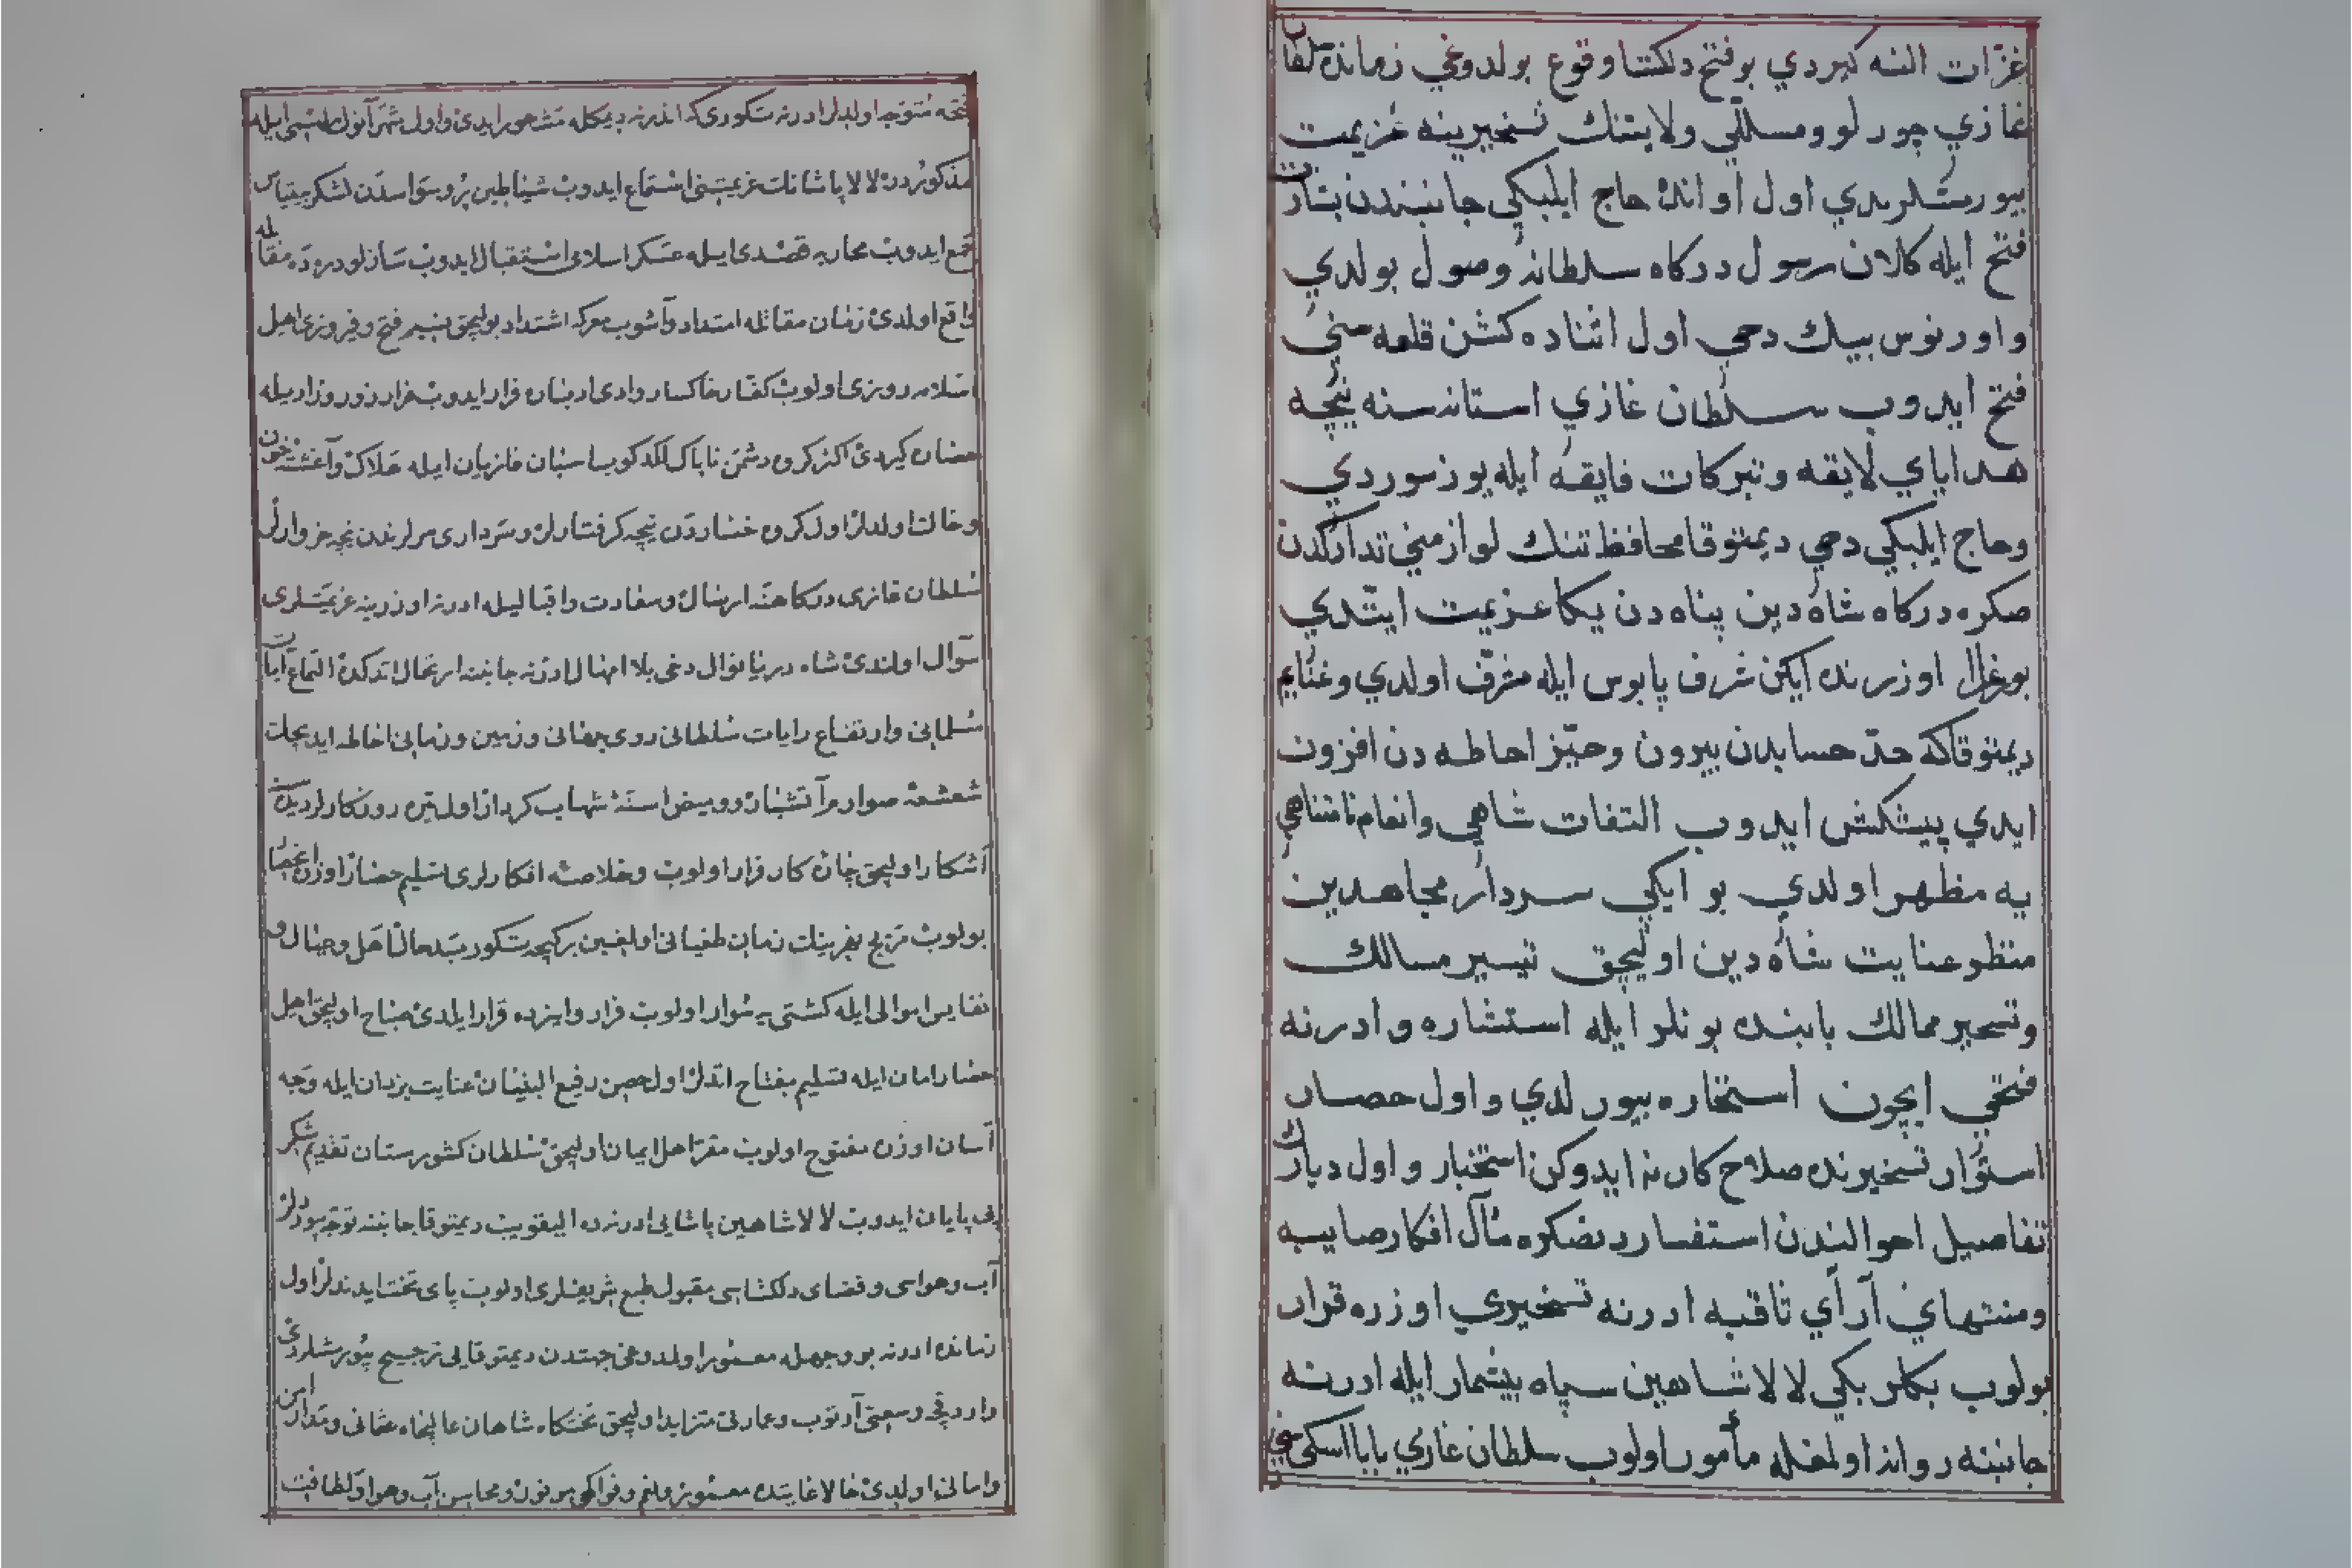 غزات النه كيردي بو فتح دلكشا وقوع بولدوغي زمانده سلطان
غازي چورلو ومسللي ولايتنك تسخيرينه عزيمت
بيورمشلريدي اول اوانده حاج ايلبكي جانبندن بشارت
فتح ايله كلان رسول دركاه سلطانه وصول بولدي
واورنوس بيك دحي اول اثناده كشن قلعه سني
فتح ايدوب سلطان غازي استانه سنه نيچه
هداياي لايقه وتبركات فايقه ايله يوز سوردي
وحاج ايلبكي دحي ديمتوقا محافظتنك لوازمني تداركدن
صكره دركاه شاه دين پناه دن يكا عزيمت ايتدي
بورغال اوزرنده ايكن شرف پابوس ايله مشرف اولدي وغنايم
ديمتوقا كه حد حسابدن بيرون وحيز احاطه دن افزون
ايدي پيشكش ايدوب التفات شاهي وانعام نامتناهي
يه مظهر اولدي بو ايكي سردار مجاهدين
منظو عنايت شاه دين اوليجق تيسير مسالك
وتسخير ممالك بابنده بونلر ايله استشاره وادرنه
فتحي ايچون استخاره بيورلدي واول حصار
استوار تسخيرنده صلاح كار نه ايدوكن استخبار واول ديارك
تفاصيل احوالندن استفساردنصكره مآل افكار صايبه
ومنتهاي آرآي ثاقبه ادرنه تسخيري اوزره قرار
بولوب بكلربكي لالا شاهين سپاه بيشمار ايله ادرنه
جانبنه روانه اولمغله مأمور اولوب سلطان غازي بابا اسكي سي
فتحه متوجه اولدلر ادرنه تكوري كه اندرنه ديمكله مشهور ايدي واول شهر آنوك ايله
مذكورده لالا پاشانك عزيمتني استماع ايدوب شياطين پر وسواسدن لشكر بيقياس
جمع ايدوب محاربه قصدي ايله عسكر اسلامي استقبال ايدوب سازلو دره ده مقابله
واقع اولدي زمان مقاتله امتداد وآشوب معركه اشتداد بوليجق نسيم فتح وفيروزي اهل
اسلامه روزي اولوب كفار خاكسار وادي ادباره فرار ايدوب هزار زور وزاريله
حصاره كيردي اكثر كروه دشمن ناپاك لكدكوب اسبان غازيان ايله هلاك وآغشته خون
وخاك اولدلر اول كروه خساردن نيچه كرفتارلر وسرداري سرلرندن نيچه خروارلر
سلطان غازي دركاهنه ارسال وسعادت واقباليله ادرنه اوزرينه عزيمتلري
سوال اولندي شاه دريا نوال دخي بلا امهال ادرنه جانبنه ارتحال اتدكده التماع آيات
سلماني وارتفاع رايات سلطاني روي وزمين وزماني احاطه ايديجك
شعشعه صوارم آتشبار ووميض اسنه شهاب كردار اول تيره روزكارلر ديده سنه
آشكارا اوليجق چاره كار فرار اولوب وخلاصه افكارلري تسليم حصار اوزره انحصار
بولوب مريج نهرينك زمان طغياني اولغين بر كيجه تكور بدحال اهل وعيال و
نفايس اموالي ايله كشتي يه سوار اولوب فرار واينزده قرار ايلدي صباح اوليجق اهل
حصار امان ايله تسليم مفتاح اتدلر اول حصن رفيع البنيان عنايت يزدان ايله وجه
آسان اوزره مفتوح اولوب مقر اهل ايمان اوليجق سلطان كشورستان تقديم شكر
بي پايان ايدوب لالا شاهين پاشايي ادرنه ده اليقويب ديمتوقا جانبنه توجه بيوردلر
آب وهواسي وفضاي دلكشاسي مقبول طبع شريفلري اولوب پاي تخت ايدندلر اول
زمانده ادرنه بو وجهله معمور اولمدوغي جهتدن ديمتوقايي ترجيح بيورمشلردي
وسعتي آرتوب وعمارتي متزايد اوليجق تختكاه شاهان عاليجاه عثماني ومدار امن
واماني اولدي حالا غايتده معمور وفواكهي موفور ومحاسن آب وهوا ولطافت